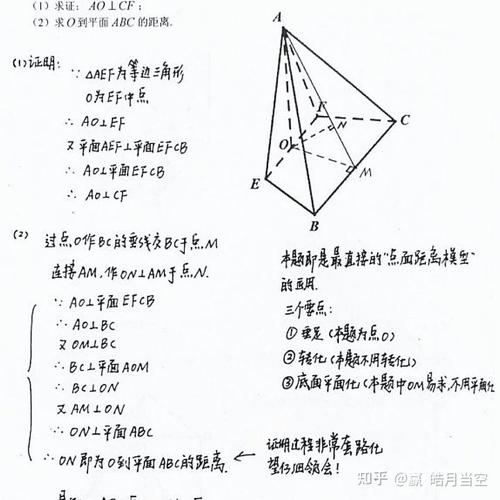 (1) 求证: AO⊥CF;
(2) 求O到平面ABC的距离.
A
F
C
N
O
M
E
B
(1) 证明: ∵ △AEF为等边三角形
O为EF中点
∴ AO⊥EF
又平面AEF⊥平面EFCB
∴ AO⊥平面EFCB
∴ AO⊥CF
(2) 过点O作BC的垂线交BC于点M
连接AM,作ON⊥AM于点N.
∵ AO⊥平面EFCB
∴ AO⊥BC
又 OM⊥BC
∴ BC⊥平面AOM
∴ BC⊥ON
又 AM⊥ON
∴ ON⊥平面ABC
∴ ON即为O到平面ABC的距离.
本题即是最直接的“点面距离模型”
的应用.
三个要点:
① 垂足(本题为点O)
② 转化(本题不用转化)
③ 底面平面化(本题中OM易求,不用平面化
← 证明过程非常套路化
望仔细领会!
知乎 @赢 皓月当空